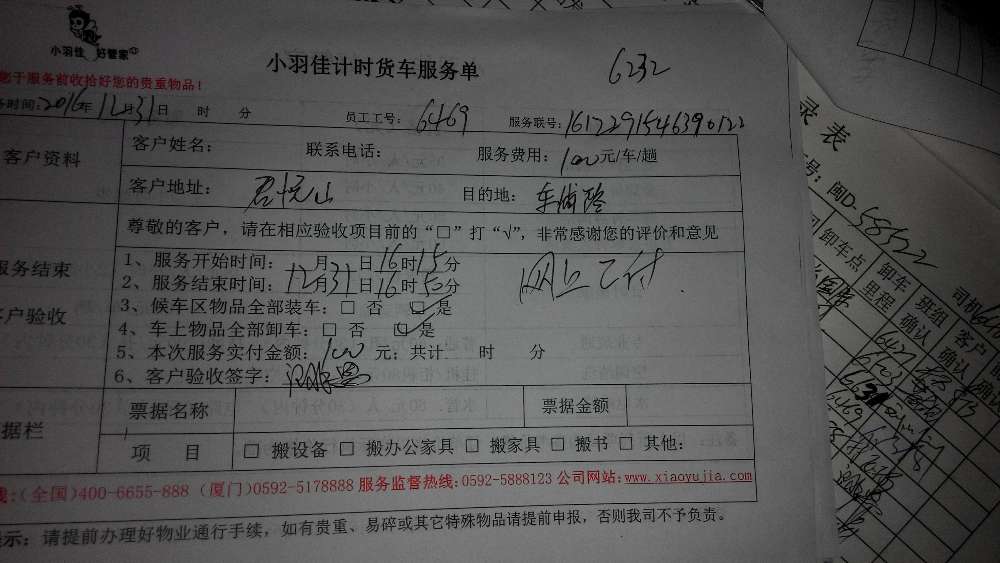 小羽佳 好管家
小羽佳计时货车服务单 6232
您于服务前收拾好您的贵重物品！
务时间：2016年12月31日 时 分 员工工号：6469 服务联号：1612291546390122
客户资料
客户姓名： 联系电话： 服务费用：100元/车/趟
客户地址：君悦山 目的地：
尊敬的客户，请在相应验收项目前的“□”打“√”，非常感谢您的评价和意见
服务结束
客户验收
1、服务开始时间： 月 日16时15分
2、服务结束时间：12月31日16时50分
网上已付
3、候车区物品全部装车：□ 否 □ 是
4、车上物品全部卸车：□ 否 □ 是
5、本次服务实付金额：100元；共计 时 分
6、客户验收签字：
据栏
票据名称 票据金额
项 目 □ 搬设备 □ 搬办公家具 □ 搬家具 □ 搬书 □ 其他：
线：(全国)400-6655-888 (厦门)0592-5178888 服务监督热线：0592-5888123 公司网站：www.xiaoyujia.com
提示：请提前办理好物业通行手续，如有贵重、易碎或其它特殊物品请提前申报，否则我司不予负责。
录表
号：闽D.58552
司机
卸车点 卸车里程 班组确认 客户确认